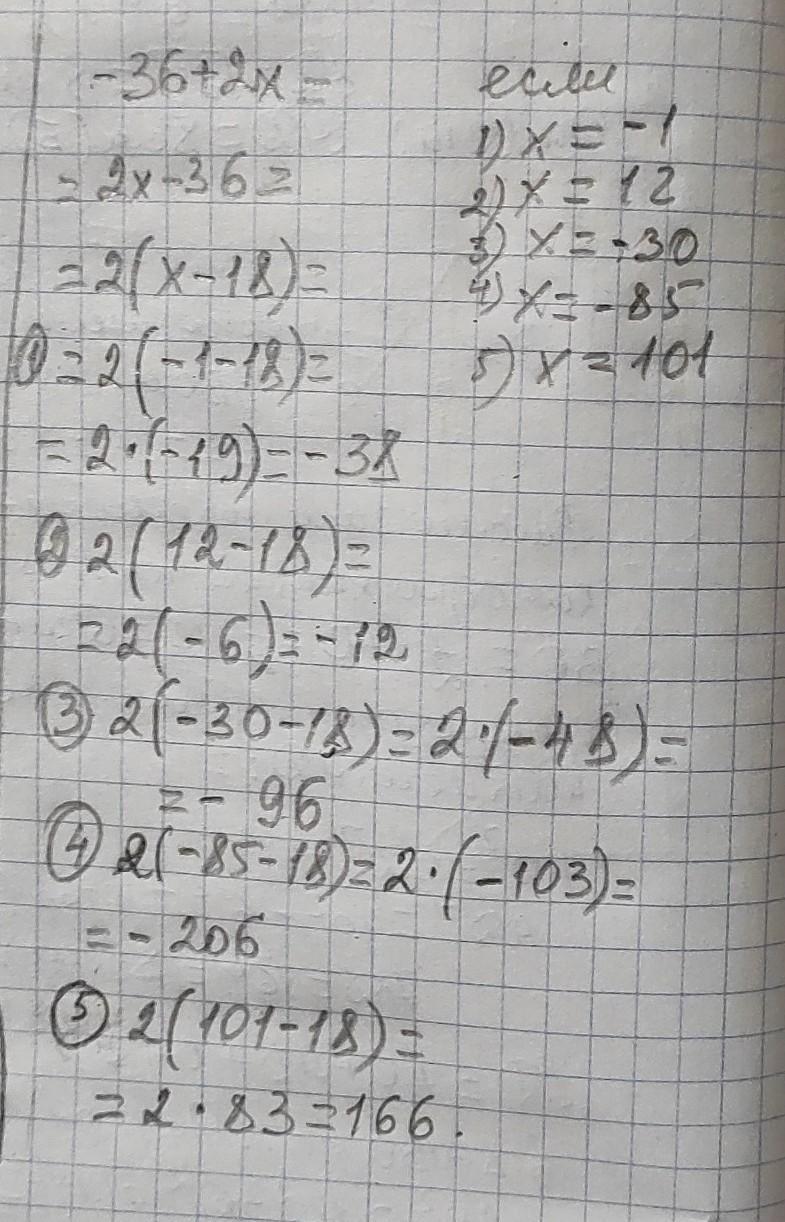 -36+2x=
= 2x-36=
=2(x-18)=
① =2(-1-18)=
=2·(-19)=-38
② 2(12-18)=
=2(-6)=-12
③ 2(-30-18)=2·(-48)=
=- 96
④ 2(-85-18)=2·(-103)=
=- 206
⑤ 2(101-18)=
=2·83=166.
если
1) x=-1
2) x=12
3) x=-30
4) x=-85
5) x=101